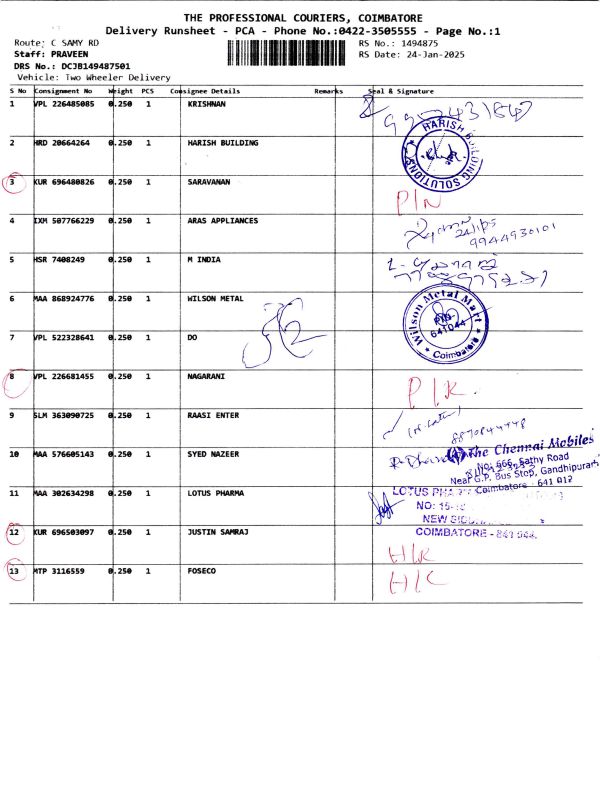 THE PROFESSIONAL COURIERS, COIMBATORE
Delivery Runsheet - PCA - Phone No.:0422-3505555 - Page No.:1
Route: C SAMY RD
RS No.: 1494875
Staff: PRAVEEN
RS Date: 24-Jan-2025
DRS No.: DCJB149487501
Vehicle: Two Wheeler Delivery
S No Consignment No Weight PCS Consignee Details Remarks Seal & Signature
1 VPL 226485085 0.250 1 KRISHNAN
2 HRD 20664264 0.250 1 HARISH BUILDING HARISH BUILDING SOLUTIONS
3 KUR 696480826 0.250 1 SARAVANAN P/N
4 IXM 507766229 0.250 1 ARAS APPLIANCES 9944930101
5 HSR 7408249 0.250 1 M INDIA
6 MAA 868924776 0.250 1 WILSON METAL Wilson Metal Mart PIN- 641044 Coimbatore
7 VPL 522328641 0.250 1 DO
8 VPL 226681455 0.250 1 NAGARANI P/K
9 SLM 363090725 0.250 1 RAASI ENTER
10 MAA 576605143 0.250 1 SYED NAZEER The Chennai Mobiles
No: 666, Sathy Road
Near G.P. Bus Stop, Gandhipuram
Coimbatore - 641 012
11 MAA 302634298 0.250 1 LOTUS PHARMA LOTUS PHARMA
NO: 15-
NEW
COIMBATORE -
12 KUR 696503097 0.250 1 JUSTIN SAMRAJ H/K
13 MTP 3116559 0.250 1 FOSECO H/C